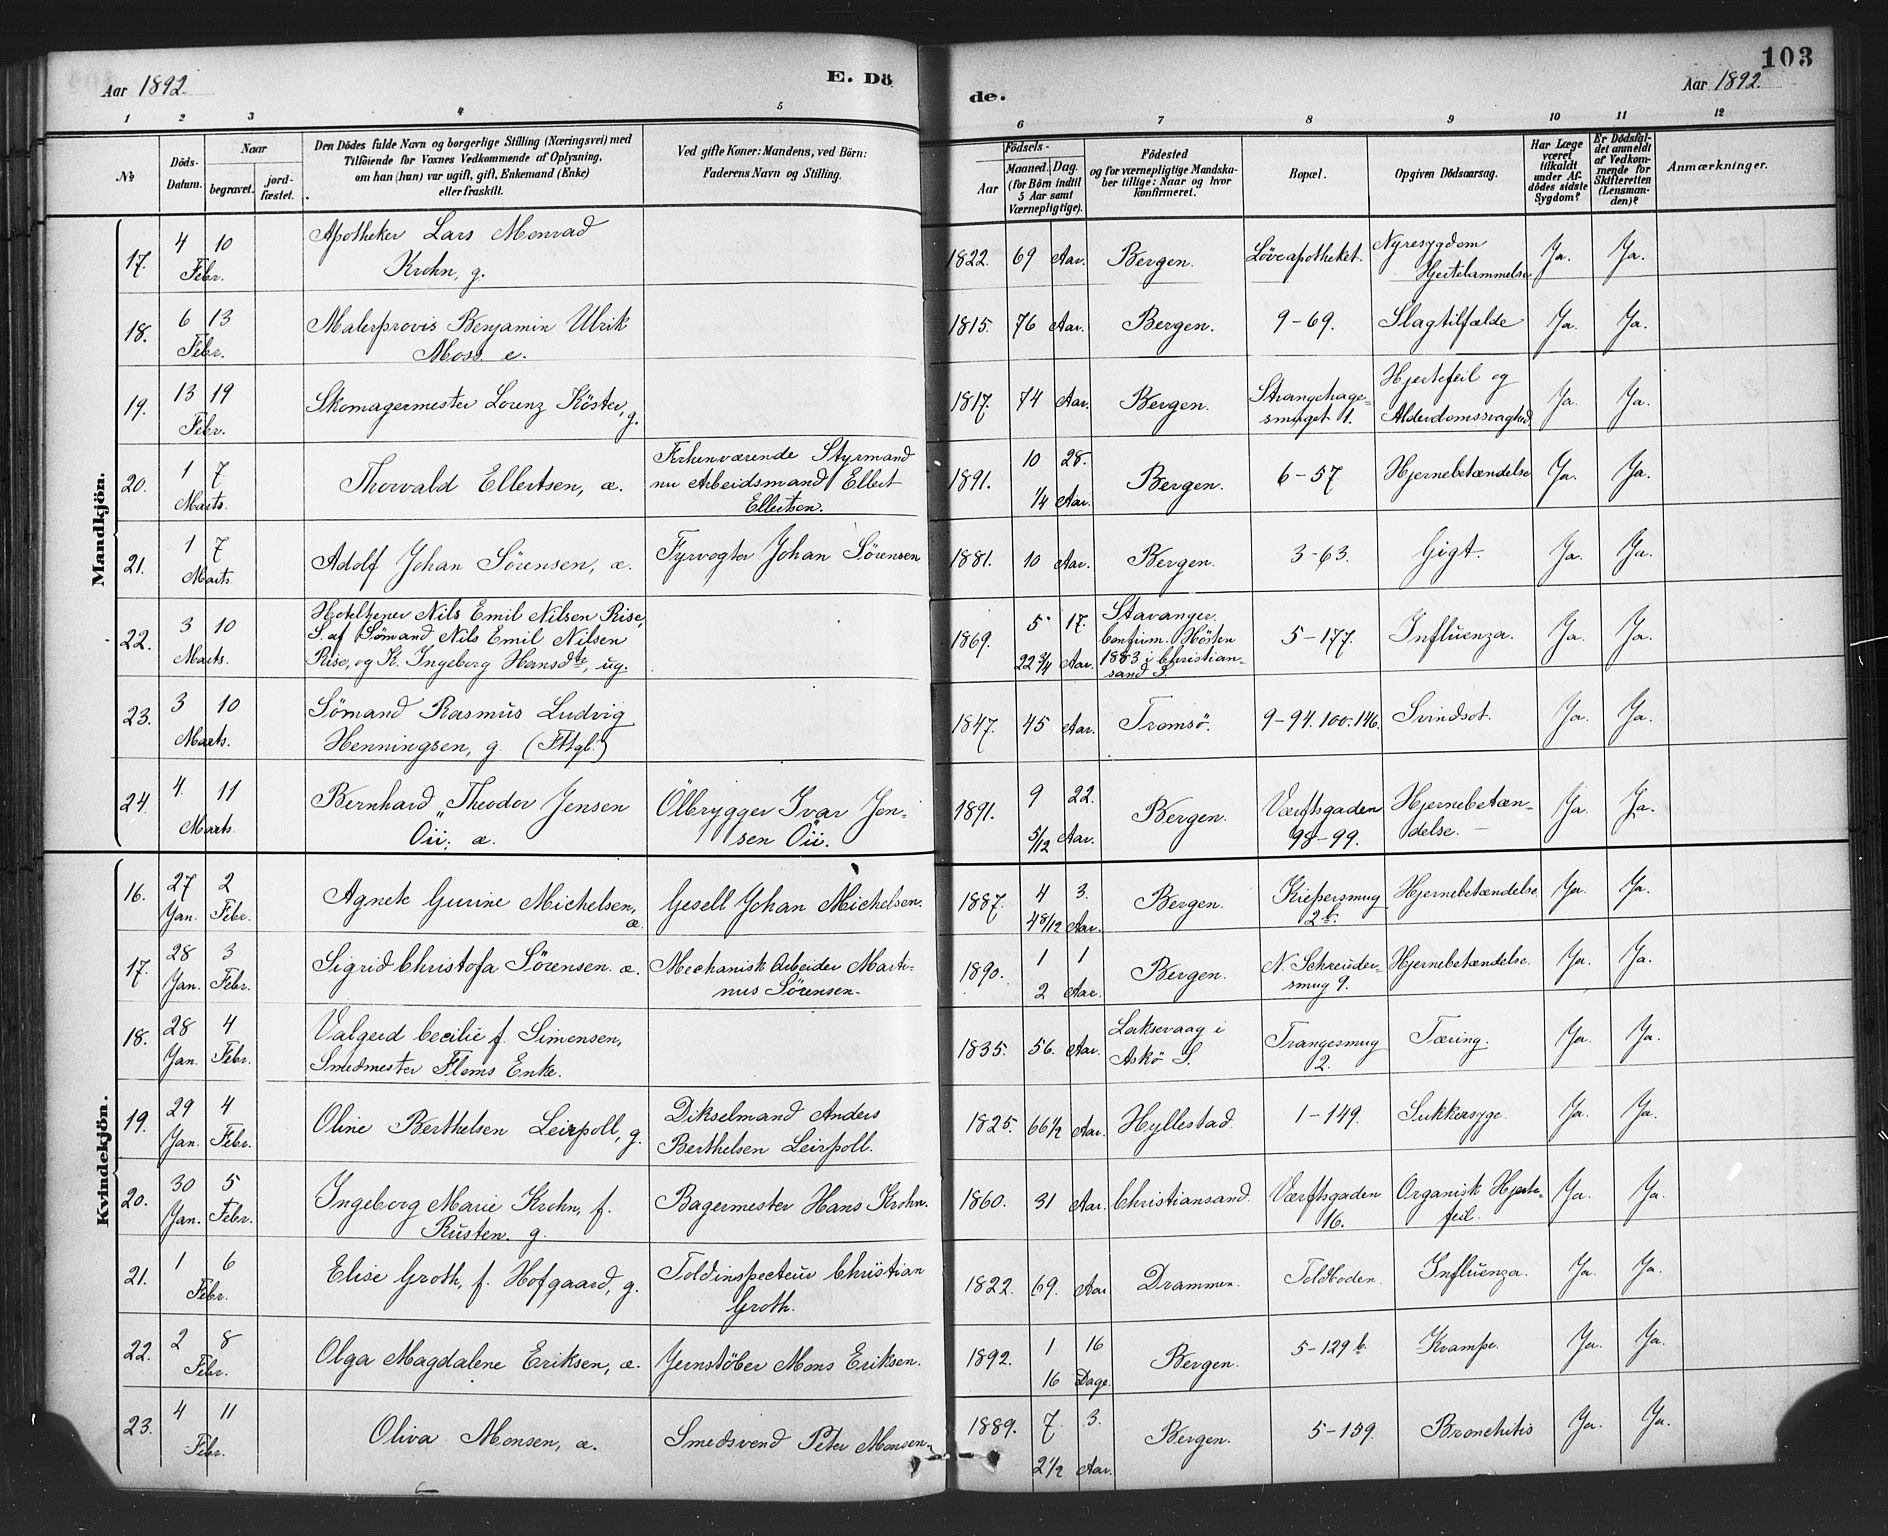 Aar 1892.
E. Dö
de.
Aar 1892.
103
1 2 3 4 5 6 7 8 9 10 11 12
No
Döds-
Datum.
Naar
begravet.
jord-
fæstet.
Den Dödes fulde Navn og borgerlige Stilling (Næringsvei) med
Tilföiende for Voxnes Vedkommende af Oplysning,
om han (hun) var ugift, gift, Enkemand (Enke)
eller fraskilt.
Ved gifte Koner: Mandens, ved Börn:
Faderens Navn og Stilling.
Födsels-
Aar
Maaned. Dag.
(for Börn indtil
5 Aar samt
Værnepligtige).
Födested
og for værnepligtige Mandska-
ber tillige: Naar og hvor
konfirmeret.
Bopæl.
Opgiven Dödsaarsag.
Har Læge
været
tilkaldt
under Af-
dödes sidste
Sygdom?
Er Dödsfal-
det anmeldt
af Vedkom-
mende for
Skifteretten
(Lensman-
den)?
Anmærkninger.
Mandkjön.
17. 4 10 Febr. Apotheker Lars Monrad
Krohn, g.
1822. 69 Aar. Bergen. Löveapotheket. Nyresygdom
Hjertelammelse Ja. Ja.
18. 6 13 Febr. Malerprovis Benjamin Ulrik
Moss. e.
1815. 76 Aar. Bergen. 9-69. Slagtilfælde Ja. Ja.
19. 13 19 Febr. Skomagermester Lorenz Köster, g.
1817. 74 Aar. Bergen. Strangehage-
smuget 1. Hjertefeil og
Alderdomssvaghed. Ja. Ja.
20. 1 7 Marts. Thorvald Ellertsen, æ.
Forhenværende Styrmand
nu Arbeidsmand Ellert
Ellertsen.
1891. 10 28. 1/4 Aar. Bergen. 6-57. Hjernebetændelse Ja. Ja.
21. 1 7 Marts. Adolf Johan Sörensen, æ. Fyrvogter Johan Sörensen
1881. 10 Aar. Bergen. 3-63. Gigt. Ja. Ja.
22. 3 10 Marts. Hoteltjener Nils Emil Nilsen Rise,
S. af Sömand Nils Emil Nilsen
Rise, og K. Ingeborg Hansdtr, ug.
1869. 5 17. 22 3/4 Aar. Stavanger.
Confirm. Hösten
1883 i Christian-
sand S. 5-177. Influenza. Ja. Ja.
23. 3 10 Marts. Sömand Rasmus Ludvig
Henningsen, g.
1847. 45 Aar. Tromsö. 9-94.100-146. Svindsot. Ja. Ja.
24. 4 11 Marts. Bernhard Theodor Jensen
Öii. æ. Ölbrygger Ivar Jen-
sen Öii.
1891. 9 22. 5/12 Aar. Bergen. Værftsgaden
98-99. Hjernebetæn-
delse. Ja. Ja.
Kvindekjön.
16. 27 Jan. 2 Febr. Agnete Gurine Michelsen, æ. Gesell Johan Michelsen.
1887. 4 3. 4 8/12 Aar. Bergen. Kippersmug
2b. Hjernebetændelse. Ja. Ja.
17. 28 Jan. 3 Febr. Sigrid Christofa Sörensen. æ. Mechanisk Arbeider Marti-
nus Sörensen.
1890. 1 1 2 Aar. Bergen. N. Schreuder-
smug 9. Hjernebetændelse. Ja. Ja.
18. 28 Jan. 4 Febr. Valgerd Cecilie f. Simensen,
Smedmester Flems Enke.
1835. 56. Aar. Laksevaag i
Askö S. Trangesmug
2. Tæring. Ja. Ja.
19. 29 Jan. 4 Febr. Oline Berthelsen Leirpoll, g. Dikselmand Anders
Berthelsen Leirpoll.
1825. 66 1/2 Aar. Hyllestad. 1-149. Sukkersyge. Ja. Ja.
20. 30 Jan. 5 Febr. Ingeborg Marie Krohn, f.
Rusten. g. Bagermester Hans Krohn.
1860. 31 Aar. Christiansand. Værftsgaden
16. Organisk Hjerte-
feil. Ja. Ja.
21. 1 6 Febr. Elise Groth, f. Hofgaard, g. Toldinspecteur Christian
Groth.
1822. 69. Aar. Drammen. Toldboden. Influenza. Ja. Ja.
22. 2 8 Febr. Olga Magdalene Eriksen, æ. Jernstöber Mons Eriksen.
1892. 1 16 16 Dage. Bergen. 5-129 b. Krampe. Ja. Ja.
23. 4 11 Febr. Oliva Monsen, æ. Smedsvend Peter Monsen.
1889. 7 3. 2 1/2 Aar. Bergen. 5-159. Bronchitis Ja. Ja.